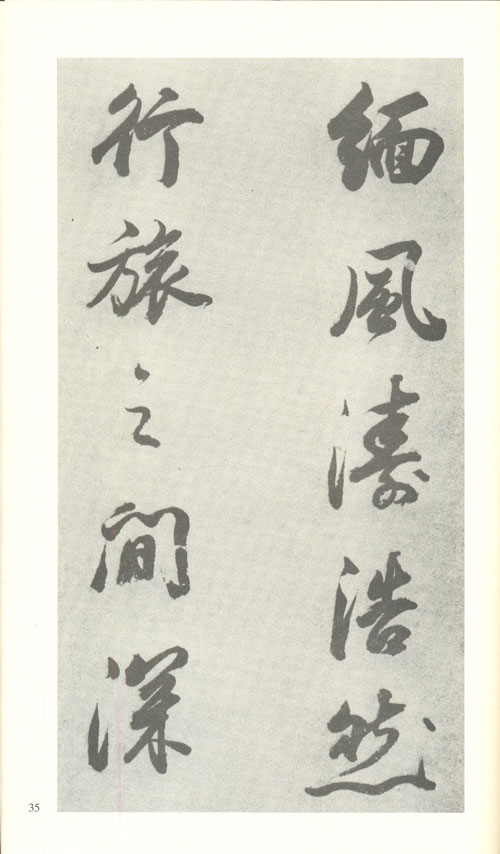 緬風濤浩然
行旅之間深
35